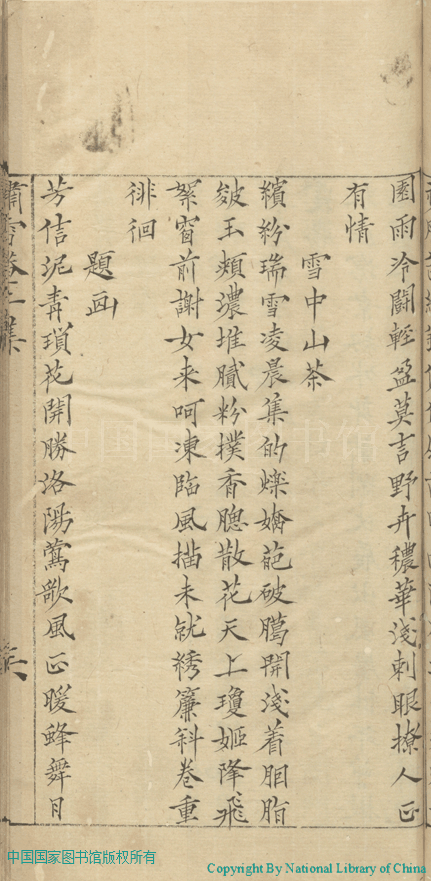 園雨冷闘輕盈莫言野卉穠華淺刺眼撩人正
有情
雪中山茶
繽紛瑞雪凌晨集的爍嬌葩破臈開淺着胭脂
皴玉頰濃堆膩粉撲香腮散花天上瓊姬降飛
絮窗前謝女来呵凍臨風描未就綉簾斜卷重
徘徊
題画
芳信泥青瑣花開勝洛陽鶯歌風正暖蜂舞日
中国国家图书馆版权所有
Copyright By National Library of China